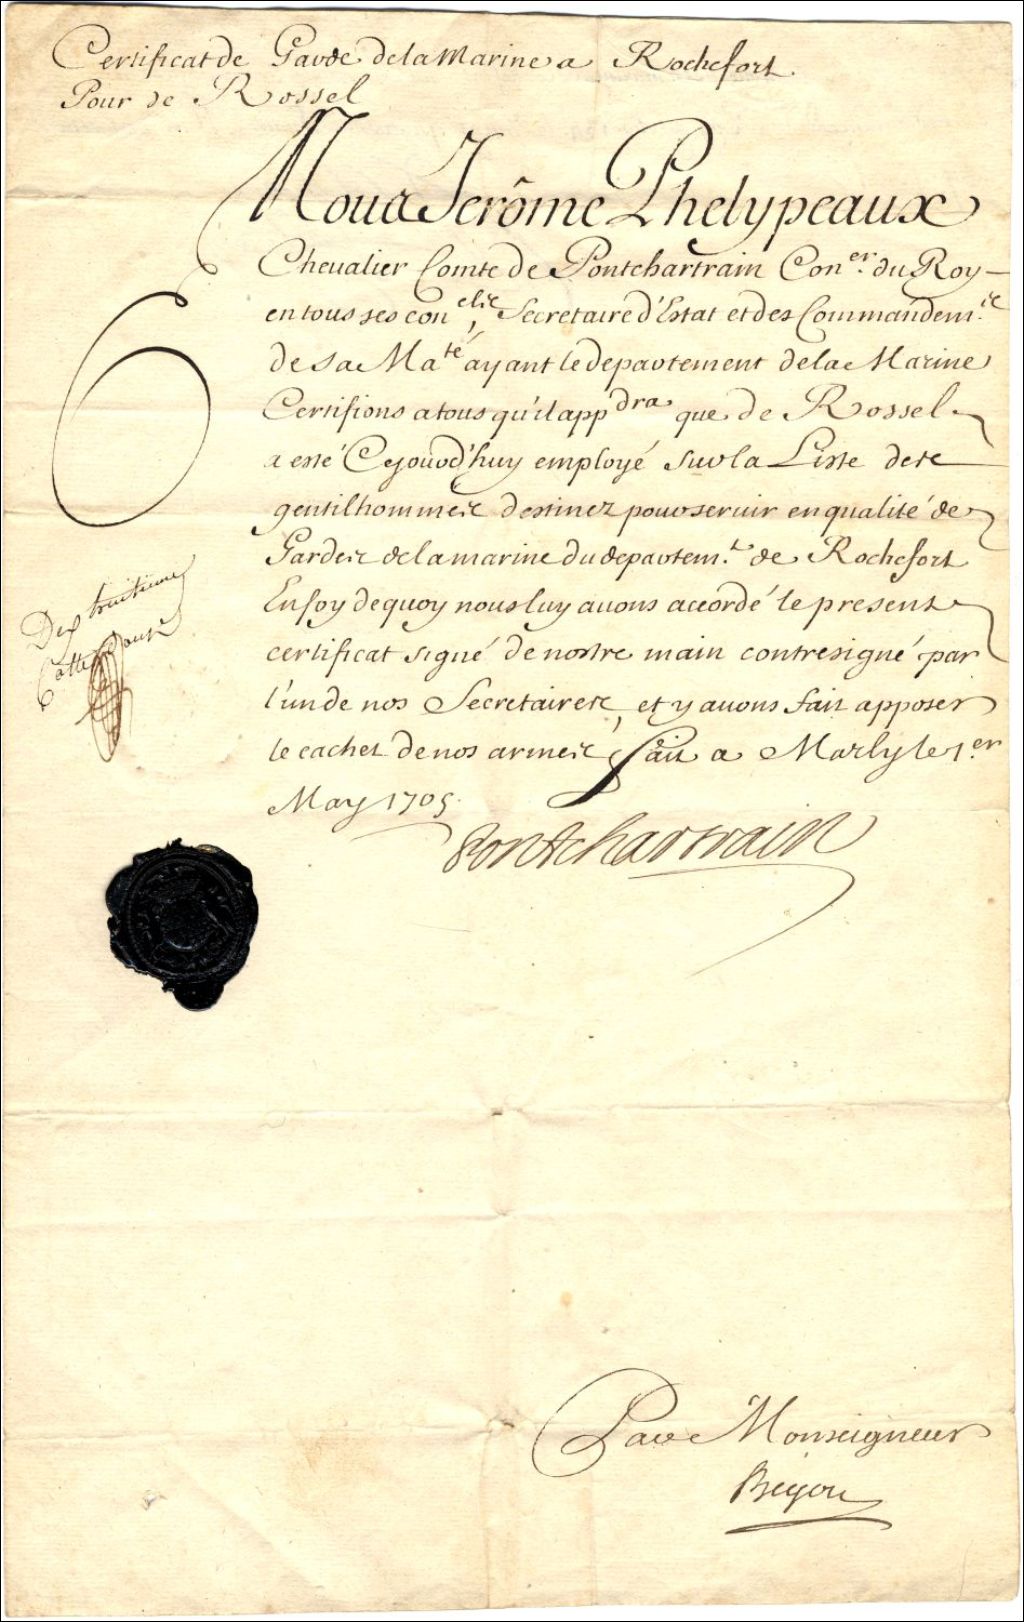 Certificat de Garde de la Marine a Rochefort
Pour de Rossel
Nous Jerôme Phelypeaux
Chevalier Comte de Pontchartrain Con.er du Roy
en tous ses con.els, Secretaire d'Estat et des Commandem.ts
de sa Ma.té ayant le departement de la Marine
Certifions a tous qu'il app.dra que de Rossel
a esté Cejourd'huy employé sur la Liste des
gentilhommes destinez pour servir en qualité de
Gardes de la marine du departem.t de Rochefort
En foy de quoy nous luy avons accordé le present
certificat signé de nostre main contresigné par
l'un de nos Secretaires, et y avons fait apposer
le cachet de nos armes, fait a Marly le 1.er
May 1705.
Pontchartrain
Dix huitieme
Cotte douze
Par Monseigneur
Begon